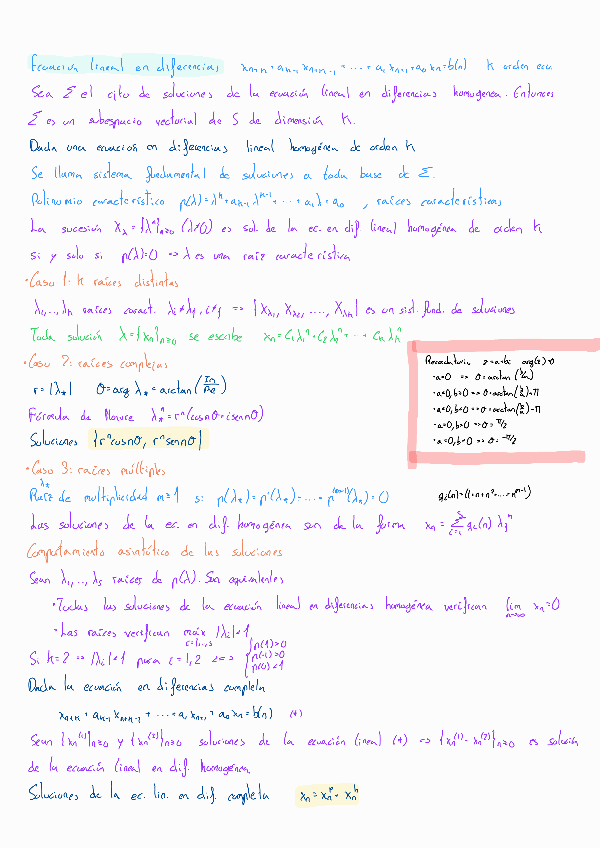 Ecuación lineal en diferencias xn+k + ak-1 xn+k-1 + ... + a1 xn+1 + a0 xn = b(n) k orden ecu
Sea Σ el cjto de soluciones de la ecuación lineal en diferencias homogénea. Entonces
Σ es un subespacio vectorial de S de dimensión k.
Dada una ecuación en diferencias lineal homogénea de orden k
Se llama sistema fundamental de soluciones a toda base de Σ.
Polinomio característico p(λ)=λ^k+ak-1 λ^k-1+...+a1λ+a0 , raíces características
La sucesión Xλ={λ^n}n≥0 (λ≠0) es sol. de la ec. en dif lineal homogénea de orden k
si y solo si p(λ)=0 => λ es una raíz característica
·Caso 1: k raíces distintas
λ1,..,λk raíces caract. λi≠λj, i≠j => {Xλ1, Xλ2, ...., Xλk} es un sist. fund. de soluciones
Toda solución X={xn}n≥0 se escribe xn=C1λ1^n+C2λ2^n+...+Ckλk^n
·Caso 2: raíces complejas
r=|λ*| θ=arg λ*=arctan(Im/Re)
Fórmula de Moivre λ*^n=r^n(cosnθ+isennθ)
Soluciones {r^n cosnθ, r^n sennθ}
Recordatorio z=a+bi arg(z)=θ
·a>0 => θ=arctan(b/a)
·a<0, b>0 => θ=arctan(b/a)+π
·a<0, b<0 => θ=arctan(b/a)-π
·a=0, b>0 => θ=π/2
·a=0, b<0 => θ=-π/2
·Caso 3: raíces múltiples
λ*
Raíz de multiplicidad m≥1 si p(λ*)=p'(λ*)=...=p^(m-1)(λ*)=0
Las soluciones de la ec. en dif. homogénea son de la forma xn=Σ qi(n) λj^n
Comportamiento asintótico de las soluciones
Sean λ1,..,λs raíces de p(λ). Son equivalentes
·Todas las soluciones de la ecuación lineal en diferencias homogénea verifican lim n→∞ xn=0
·Las raíces verifican máx i=1,..,s |λi|<1
Si k=2 => |λi|<1 para i=1,2 <=> { p(1)>0 p(-1)>0 p(0)<1
Dada la ecuación en diferencias completa
xn+k + ak-1 xn+k-1 + ... + a1 xn+1 + a0 xn = b(n) (*)
Sean {xn^(1)}n≥0 y {xn^(2)}n≥0 soluciones de la ecuación lineal (*) => {xn^(1)-xn^(2)}n≥0 es solución
de la ecuación lineal en dif. homogénea
Soluciones de la ec. lin. en dif. completa xn=xn^p+xn^h